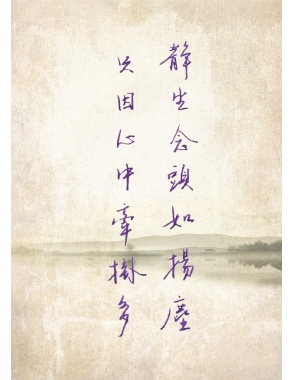 靜坐念頭如揚塵
只因心中牽掛多